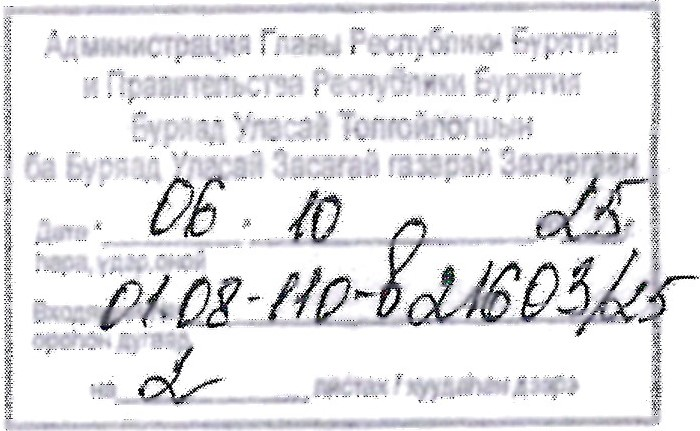 Администрация Главы Республики Бурятия
и Правительства Республики Бурятия
Буряад Уласай Толгойлогшын
ба Буряад Уласай Засагай газарай Захиргаан
Дата " 06 " 10 25
һара, удэр, оной
01.08-110-821603/25
ороһон дугаар
на 2 листах / хууданан дээрэ